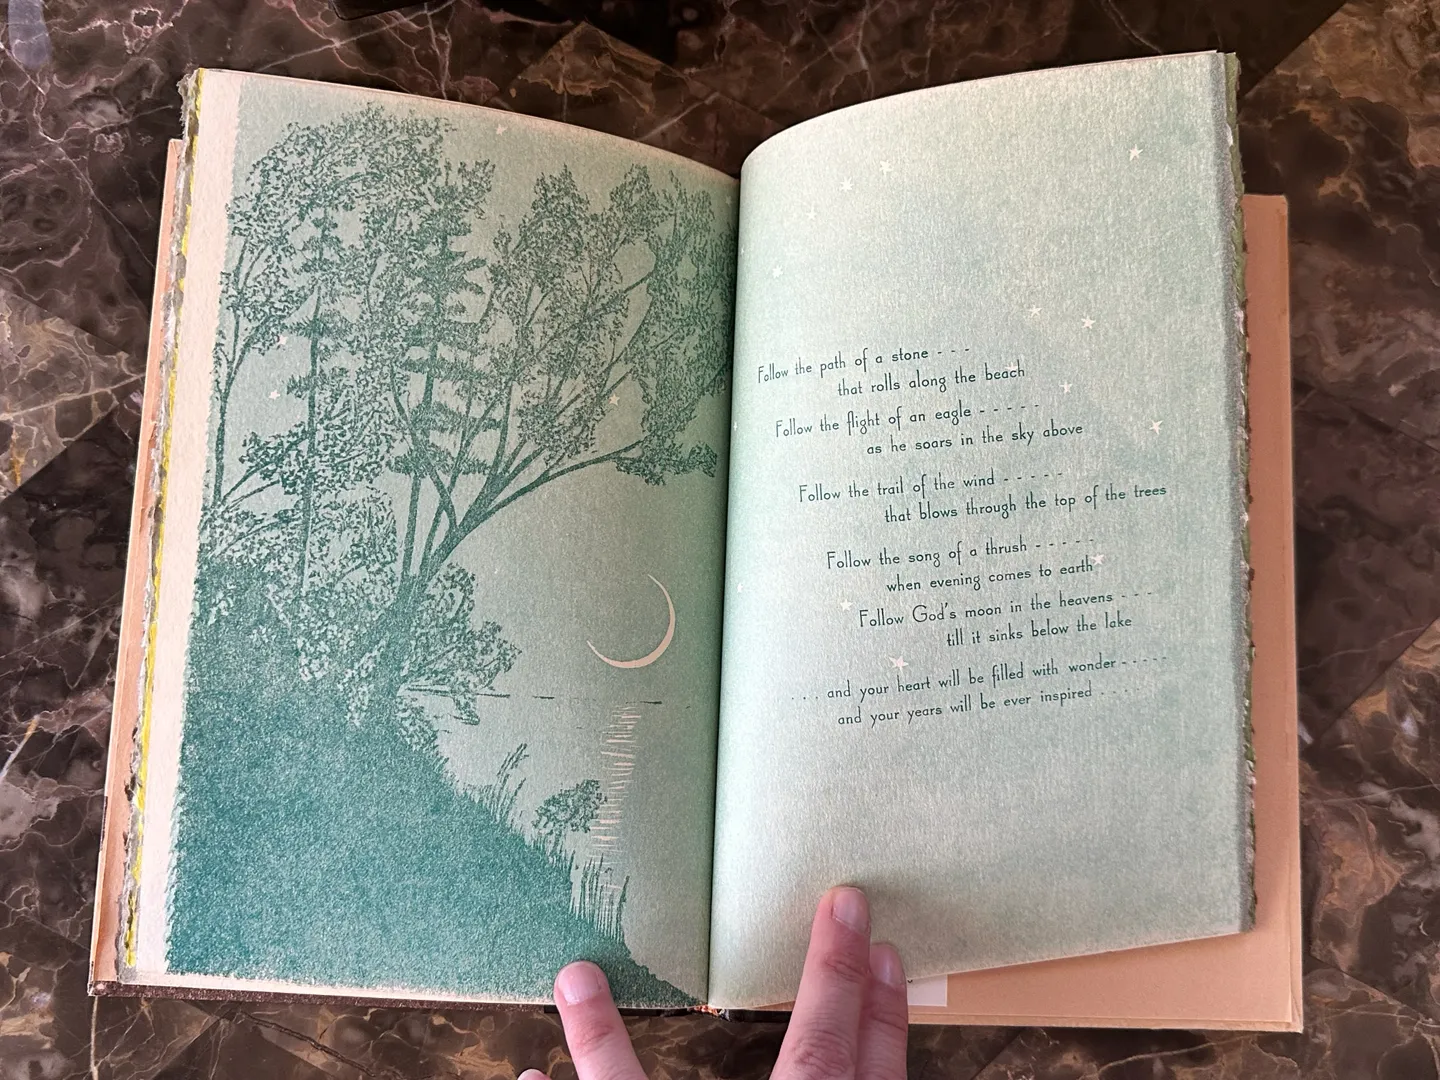 Follow the path of a stone - - -
that rolls along the beach
Follow the flight of an eagle - - - - -
as he soars in the sky above
Follow the trail of the wind - - - - -
that blows through the top of the trees
Follow the song of a thrush - - - - -
when evening comes to earth
Follow God's moon in the heavens - - -
till it sinks below the lake
. . . and your heart will be filled with wonder - - - - -
and your years will be ever inspired . . . . .